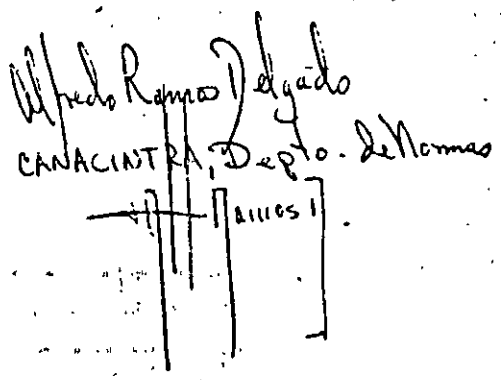 Alfredo Ramos Delgado
CANACINTRA, Depto. de Normas